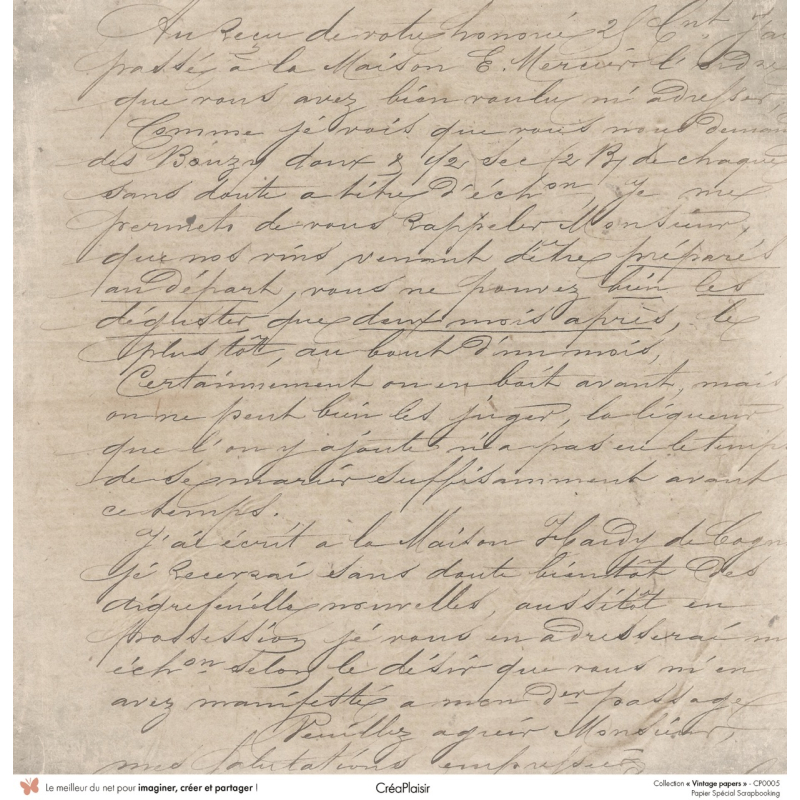 Au Reçu de votre honorée 25 Cnt, J'ai
passé à la Maison E. Mercier l'ordre
que vous avez bien voulu m'adresser,
Comme je vois que vous nous deman
des Bouzy doux & 1/2 sec (2 B) de chaque
sans doute a titre d'échon, Je me
permets de vous Rappeler Monsieur,
que nos vins, venant d'être préparés
au départ, vous ne pouvez bien les
déguster que deux mois après, le
plus tôt, au bout d'un mois,
Certainement on en boit avant, mais
on ne peut bien les juger, la liqueur
que l'on y ajoute n'a pas eu le temps
de se marier suffisamment avant
ce temps.
J'ai écrit a la Maison Hardy de Cogn
je recevrai sans doute bientôt des
aigrefeuille nouvelles, aussitôt en
possession je vous en adresserai
échon selon le désir que vous m'en
avez manifesté a mon der passage
Veuillez agréer Monsieur,
mes Salutations empressées
Le meilleur du net pour imaginer, créer et partager !
CréaPlaisir
Collection « Vintage papers » - CP0005
Papier Spécial Scrapbooking